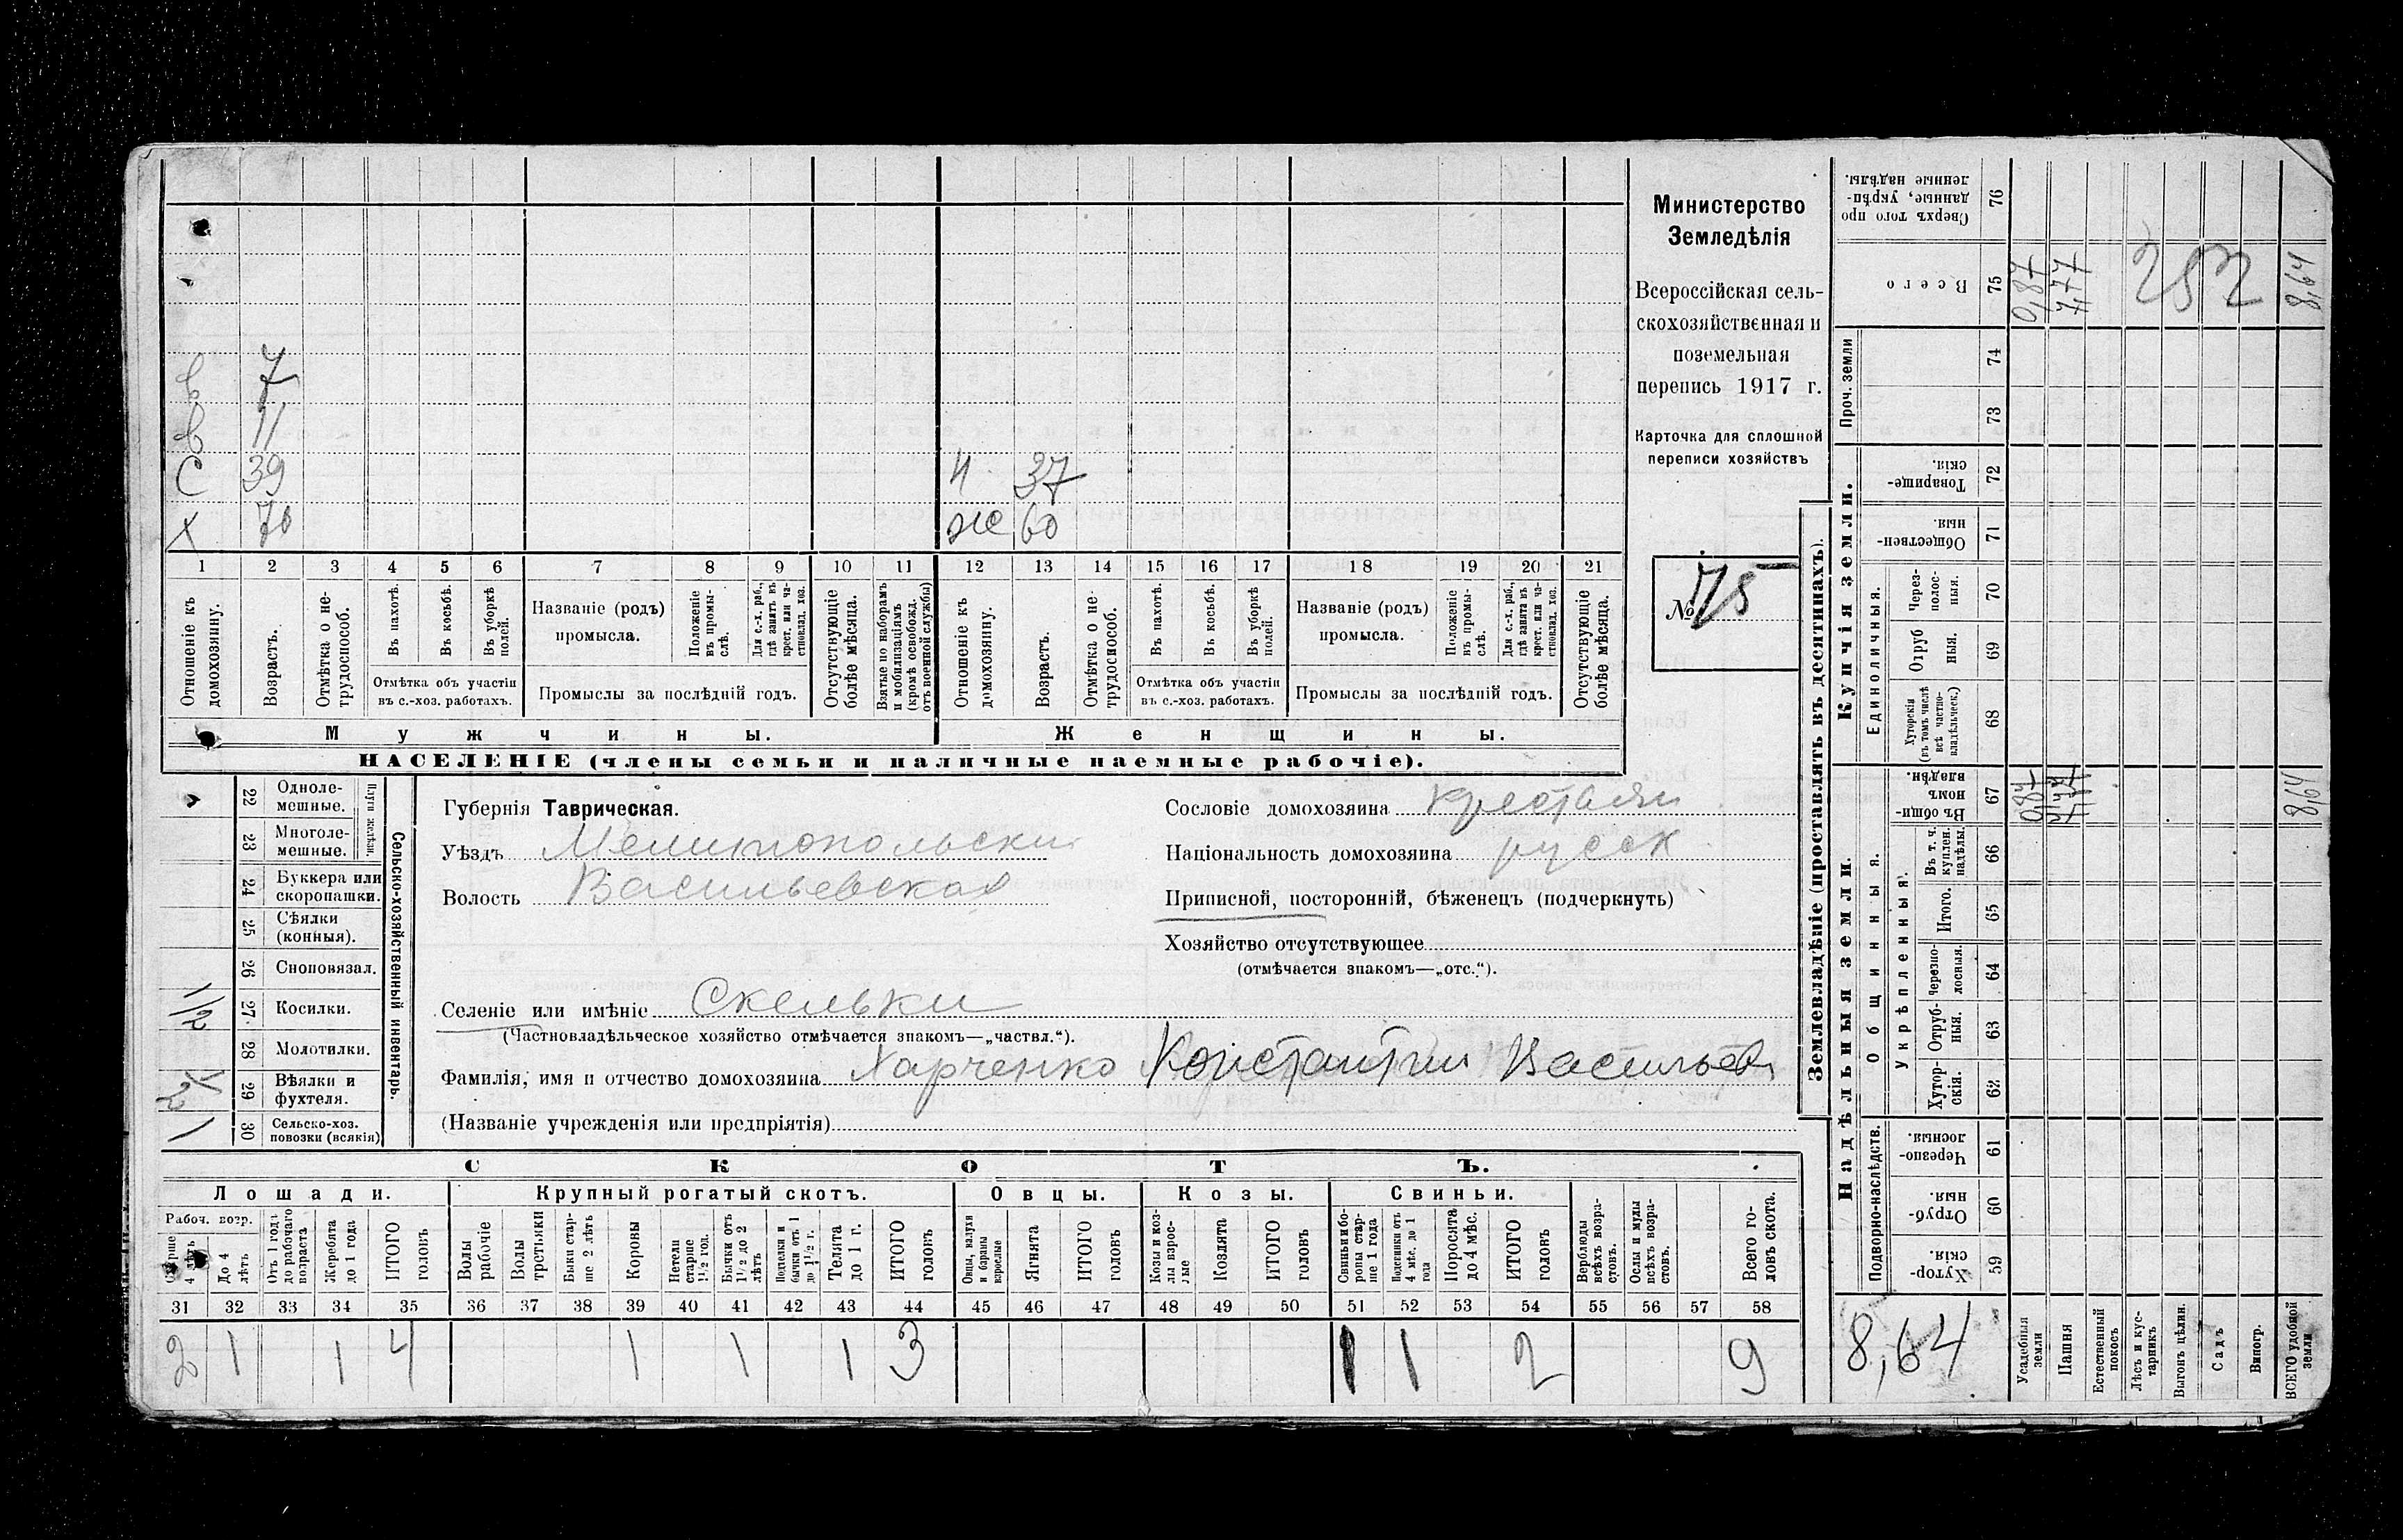 в 7
в 11
С 39 Н 37
Х 70 же 60
1 2 3 4 5 6 7 8 9 10 11 12 13 14 15 16 17 18 19 20 21
Отношеніе къ домохозяину.
Возрастъ.
Отмѣтка о не-трудоспособ.
Въ пахотѣ.
Въ косьбѣ.
Въ уборкѣ полей.
Отмѣтка объ участіи въ с.-хоз. работахъ.
Названіе (родъ) промысла.
Положеніе въ промы-слѣ.
Для с.-х. раб., гдѣ занятъ въ крест. или ча-стновлад. хоз.
Промыслы за послѣдній годъ.
Отсутствующіе болѣе мѣсяца.
Взятые по наборамъ и мобилизаціямъ (кромѣ освобожд. отъ военной службы)
Отношеніе къ домохозяину.
Возрастъ.
Отмѣтка о не-трудоспособ.
Въ пахотѣ.
Въ косьбѣ.
Въ уборкѣ полей.
Отмѣтка объ участіи въ с.-хоз. работахъ.
Названіе (родъ) промысла.
Положеніе въ промы-слѣ.
Для с.-х. раб., гдѣ занята въ крест. или ча-стновлад. хоз.
Промыслы за послѣдній годъ.
Отсутствующіе болѣе мѣсяца.
Мужчины. Женщины.
НАСЕЛЕНІЕ (члены семьи и наличные наемные рабочіе).
Министерство
Земледѣлія
Всероссійская сель-
скохозяйственная и
поземельная
перепись 1917 г.
Карточка для сплошной
переписи хозяйствъ
№ 75
22 Одноле-мешные.
23 Многоле-мешные.
Плуги желѣзн.
24 Буккера или скоропашки.
25 Сѣялки (конныя).
26 Сноповязал.
27 Косилки. 1/2
28 Молотилки.
29 Вѣялки и фухтеля.
30 Сельско-хоз. повозки (всякія) 1
Сельско-хозяйственный инвентарь.
Губернія Таврическая.
Уѣздъ Мелитопольски
Волость Васильевская
Селеніе или имѣніе Скельки
(Частновладѣльческое хозяйство отмѣчается знакомъ—„частвл.“).
Фамилія, имя и отчество домохозяина Харченко Константин Васильев
(Названіе учрежденія или предпріятія)
Сословіе домохозяина крестьян
Національность домохозяина русск
Приписной, посторонній, бѣженецъ (подчеркнуть)
Хозяйство отсутствующее
(отмѣчается знакомъ—„отс.“).
СКОТЪ.
Лошади. Крупный рогатый скотъ. Овцы. Козы. Свиньи.
Рабоч. возр.
Старше 4 лѣтъ
До 4 лѣтъ
Отъ 1 года до рабочаго возраста
Жеребята до 1 года
ИТОГО головъ
Волы рабочіе
Волы третьяки
Быки стар-ше 2 лѣтъ
Коровы
Нетели старше 1 1/2 год.
Бычки отъ 1 1/2 до 2 лѣтъ
Подтелки и бычки отъ 1 до 1 1/2 г.
Телята до 1 г.
ИТОГО головъ
Овцы, валухи и бараны взрослые
Ягнята
ИТОГО головъ
Козы и коз-лы взрос-лые
Козлята
ИТОГО головъ
Свиньи и бо-ровы стар-ше 1 года
Подсвинки отъ 4 мѣс. до 1 года
Поросята до 4 мѣс.
ИТОГО головъ
Верблюды всѣхъ возра-стовъ.
Ослы и мулы всѣхъ возра-стовъ.
Всего го-ловъ скота.
31 32 33 34 35 36 37 38 39 40 41 42 43 44 45 46 47 48 49 50 51 52 53 54 55 56 57 58
2 1 1 4 1 1 1 3 1 1 2 9
Землевладѣніе (проставлять въ десятинахъ).
Надѣльныя земли. Купчія земли.
Проч. земли
Подворно-наслѣдств.
Общинныя.
Укрѣпленныя.
Единоличныя.
Сверхъ того про данные, укрѣп-ленные надѣлы. 76
Всего 75 0,87 7,77 8,64
252
74
73
Товарище-скія. 72
Обществен-ныя. 71
Через-полос-ныя. 70
Отруб ныя. 69
Хуторскія (въ томъ числѣ всѣ частно-владѣльческ.) 68
Въ общи-номъ владѣн. 67 0,87 7,77 8,64
Въ т. ч. куплен. надѣлы. 66
Итого. 65
Черезпо-лосныя. 64
Отруб-ныя. 63
Хутор-скія. 62
Черезпо-лосныя. 61
Отруб-ныя. 60
Хутор-скія. 59
8,64
Усадебныя земли
Пашня
Естественный покосъ
Лѣсъ и кус-тарникъ
Выгонъ цѣлин.
Садъ
Виногр.
ВСЕГО удобной земли